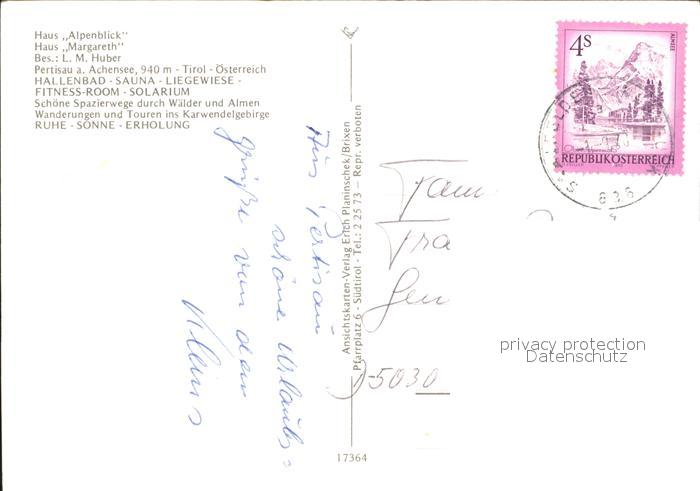 Haus „Alpenblick“
Haus „Margareth“
Bes.: L. M. Huber
Pertisau a. Achensee, 940 m - Tirol - Österreich
HALLENBAD - SAUNA - LIEGEWIESE -
FITNESS-ROOM - SOLARIUM
Schöne Spazierwege durch Wälder und Almen
Wanderungen und Touren ins Karwendelgebirge
RUHE - SONNE - ERHOLUNG
Aus Pertisau
schöne Urlaubs=
grüße von den
Ansichtskarten-Verlag Erich Planinschek/Brixen
Pfarrplatz 6 - Südtirol - Tel.: 2 25 73 — Repr. verboten
17364
4s
ALMSEE
REPUBLIK ÖSTERREICH
Fam
Fra
D-5030
privacy protection
Datenschutz